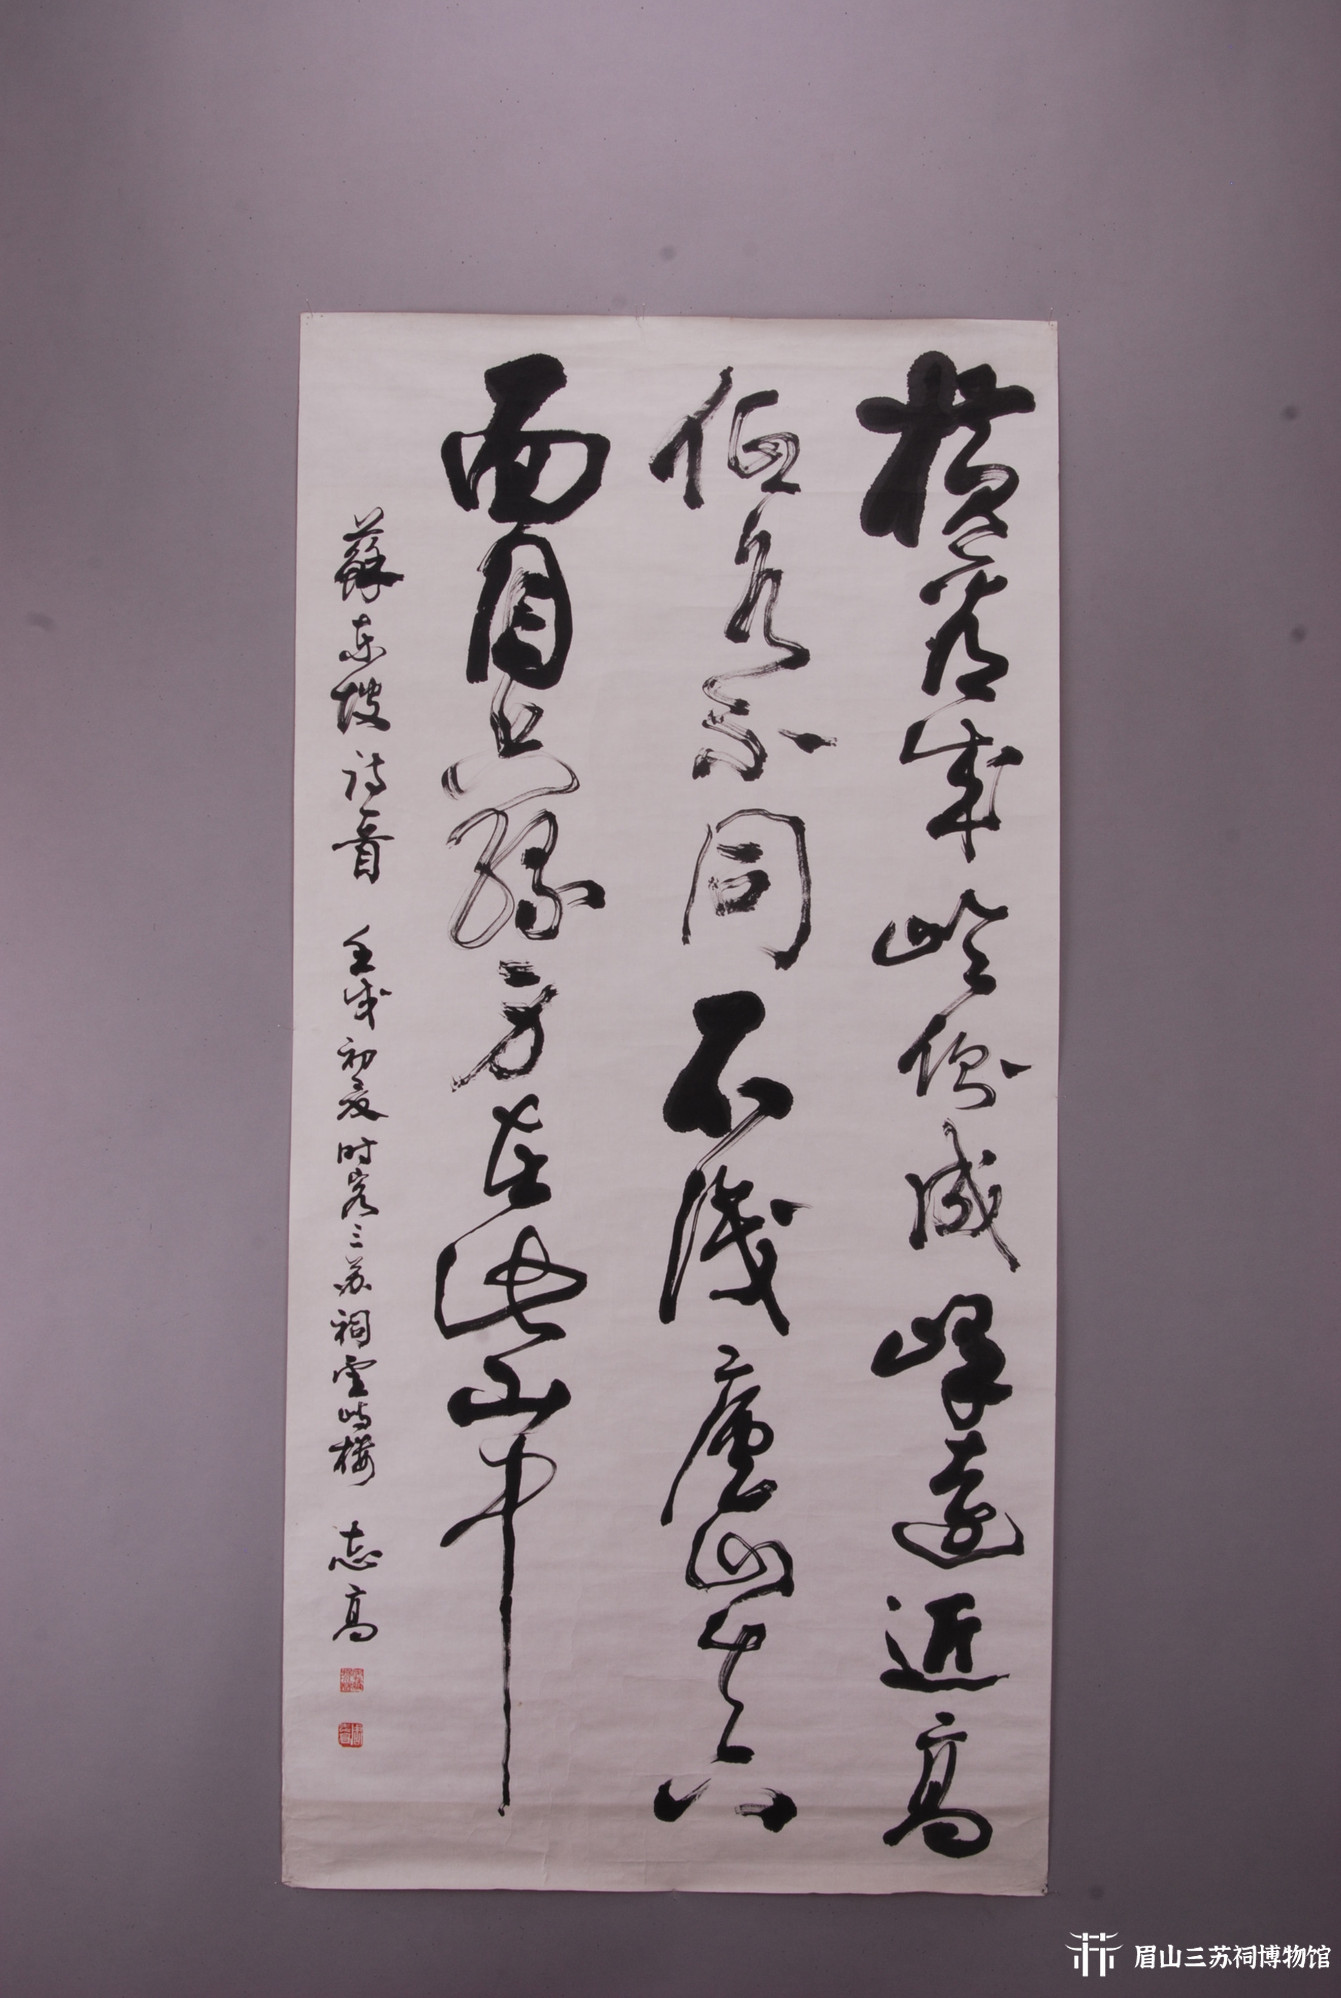 橫看成岭側成峰遠近高
低各不同不識廬山真
面目只緣身在此山中
蘇東坡詩一首 壬戌初夏时客三苏祠雲屿楼 志高
眉山三苏祠博物馆